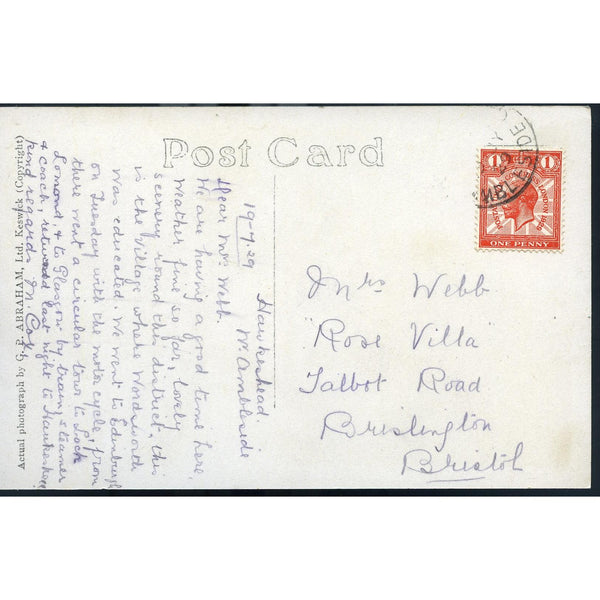 Post Card
Actual photograph by G. P. ABRAHAM, Ltd. Keswick (Copyright)
Hawkeshead.
Nr. Ambleside
19-7.29
Dear Mrs Webb.
We are having a good time here,
Weather fine so far, lovely
scenery round this district, this
is the Village where Wordsworth
was educated. We went to Edinburgh
on Tuesday with the motor cycle, from
there went a circular tour to Loch
Lomond & to Glasgow by train, steamer
& coach, returned last night to Hawkeshead
Kind regards M. Cox
1 1
POSTAL UNION CONGRESS LONDON 1929
ONE PENNY
AMBLESIDE
Mrs Webb
"Rose Villa"
Talbot Road
Brislington
Bristol